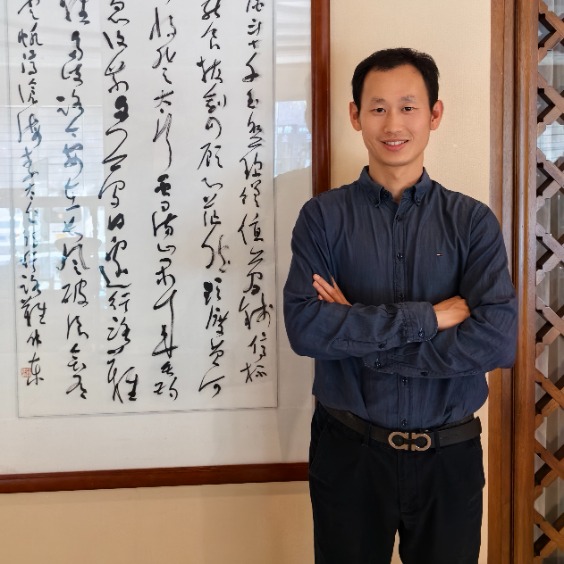 酒斗十千玉盘珍馐值万钱停杯
能食拔剑四顾心茫然欲渡黄河
将登太行雪满山闲来垂钓
忽复乘舟梦日边行路难
路难多歧路今安在长风破浪会有
云帆济沧海李太白诗行路难